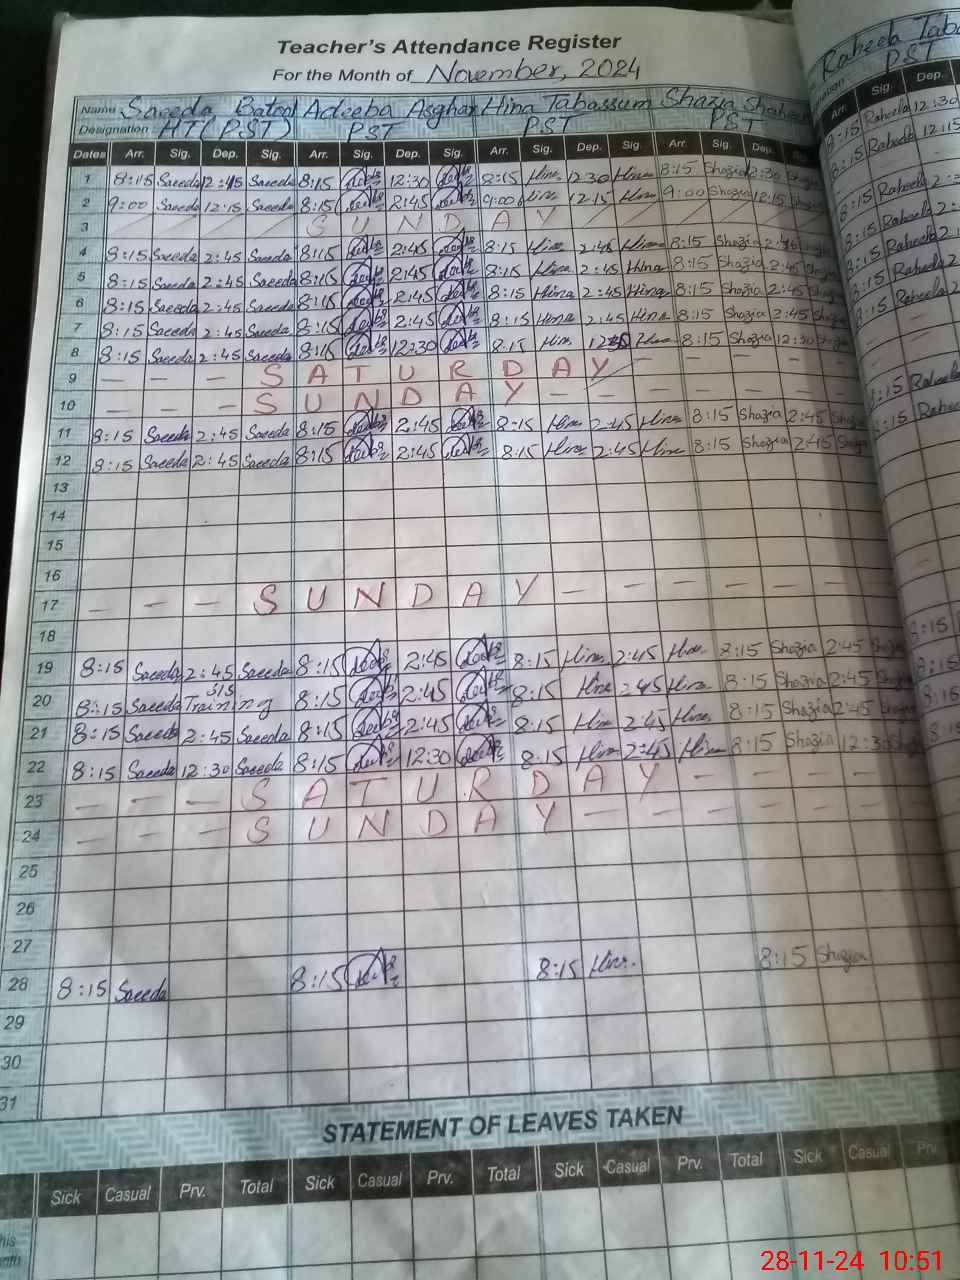 Teacher's Attendance Register
For the Month of November, 2024
Name Saeeda Batool Adeeba Asghar Hina Tabassum Shazia Shaheen Raheela Taba
Designation HT(PST) PST PST PST PST
Dates Arr. Sig. Dep. Sig. Arr. Sig. Dep. Sig. Arr. Sig. Dep. Sig. Arr. Sig. Dep. Arr. Sig. Dep.
1 8:15 Saeeda 12:45 Saeeda 8:15 12:30 8:15 Hina 12:30 Hina 8:15 Shazia 12:30 Shazia 8:15 Raheela 12:30
2 9:00 Saeeda 12:15 Saeeda 8:15 8:45 9:00 Hina 12:15 Hina 9:00 Shazia 12:15 Shazia 8:15 Raheela 12:15
3 SUNDAY
4 8:15 Saeeda 2:45 Saeeda 8:15 2:45 8:15 Hina 2:45 Hina 8:15 Shazia 2:45 Shazia 8:15 Raheela 2:
5 8:15 Saeeda 2:45 Saeeda 8:15 2:45 8:15 Hina 2:45 Hina 8:15 Shazia 2:45 Shazia 8:15 Raheela 2:
6 8:15 Saeeda 2:45 Saeeda 8:15 2:45 8:15 Hina 2:45 Hina 8:15 Shazia 2:45 Shazia 8:15 Raheela 2
7 8:15 Saeeda 2:45 Saeeda 8:15 2:45 8:15 Hina 2:45 Hina 8:15 Shazia 2:45 Shazia 8:15 Raheela 2
8 8:15 Saeeda 2:45 Saeeda 8:15 12:30 8:15 Hina Hina 8:15 Shazia 12:30 Shazia
9 — — — SATURDAY — — — —
10 — — — SUNDAY — — — — —
11 8:15 Saeeda 2:45 Saeeda 8:15 2:45 8:15 Hina 2:45 Hina 8:15 Shazia 2:45 Shazia 8:15 Raheela
12 8:15 Saeeda 2:45 Saeeda 8:15 2:45 8:15 Hina 2:45 Hina 8:15 Shazia 2:45 Shazia 8:15 Raheela
13
14
15
16
17 — — — SUNDAY — — — — — —
18
19 8:15 Saeeda 2:45 Saeeda 8:15 2:45 8:15 Hina 2:45 Hina 8:15 Shazia 2:45 Shazia 8:15
20 8:15 Saeeda SIS Training 8:15 2:45 8:15 Hina 2:45 Hina 8:15 Shazia 2:45 Shazia 8:15
21 8:15 Saeeda 2:45 Saeeda 8:15 2:45 8:15 Hina 2:45 Hina 8:15 Shazia 2:45 Shazia 8:15
22 8:15 Saeeda 12:30 Saeeda 8:15 12:30 8:15 Hina 2:45 Hina 8:15 Shazia 12:30 Shazia 8:15
23 — — — SATURDAY — — — —
24 — — — SUNDAY — — — — — —
25
26
27
28 8:15 Saeeda 8:15 8:15 Hina 8:15 Shazia
29
30
31
STATEMENT OF LEAVES TAKEN
Sick Casual Prv. Total Sick Casual Prv. Total Sick Casual Prv. Total Sick Casual Prv.
28-11-24 10:51